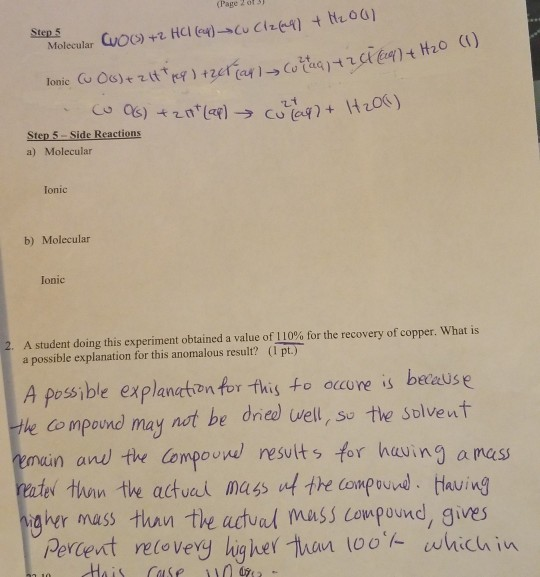 (Page 2 of 3)
Step 5
Molecular CuO(s) + 2 HCl(aq) → CuCl2(aq) + H2O(l)
Ionic CuO(s) + 2H+(aq) + 2Cl-(aq) → Cu2+(aq) + 2Cl-(aq) + H2O (l)
CuO(s) + 2H+(aq) → Cu2+(aq) + H2O(l)
Step 5 – Side Reactions
a) Molecular
Ionic
b) Molecular
Ionic
2. A student doing this experiment obtained a value of 110% for the recovery of copper. What is
a possible explanation for this anomalous result? (1 pt.)
A possible explanation for this to occure is because
the compound may not be dried well, so the solvent
remain and the compound results for having a mass
reater than the actual mass of the compound. Having
higher mass than the actual mass compound, gives
Percent recovery higher than 100% which in
this case